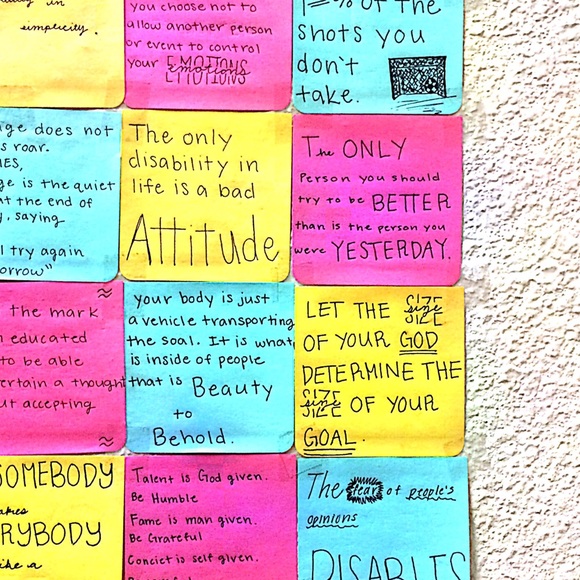 in
simplicity.
you choose not to
allow another person
or event to control
your emotions
% of the
shots you
don't
take.
does not
roar.
is the quiet
the end of
saying
try again
The only
disability in
life is a bad
Attitude
The ONLY
Person you should
try to be BETTER
than is the person you
were YESTERDAY.
the mark
educated
to be able
a thought
accepting
your body is just
a vehicle transporting
the soal. It is what
is inside of people
that is Beauty
to
Behold.
LET THE size
OF YOUR GOD
DETERMINE THE
size OF YOUR
GOAL.
SOMEBODY
a
Talent is God given.
Be Humble
Fame is man given.
Be Grateful
Concict is self given.
The fear of people's
opinions